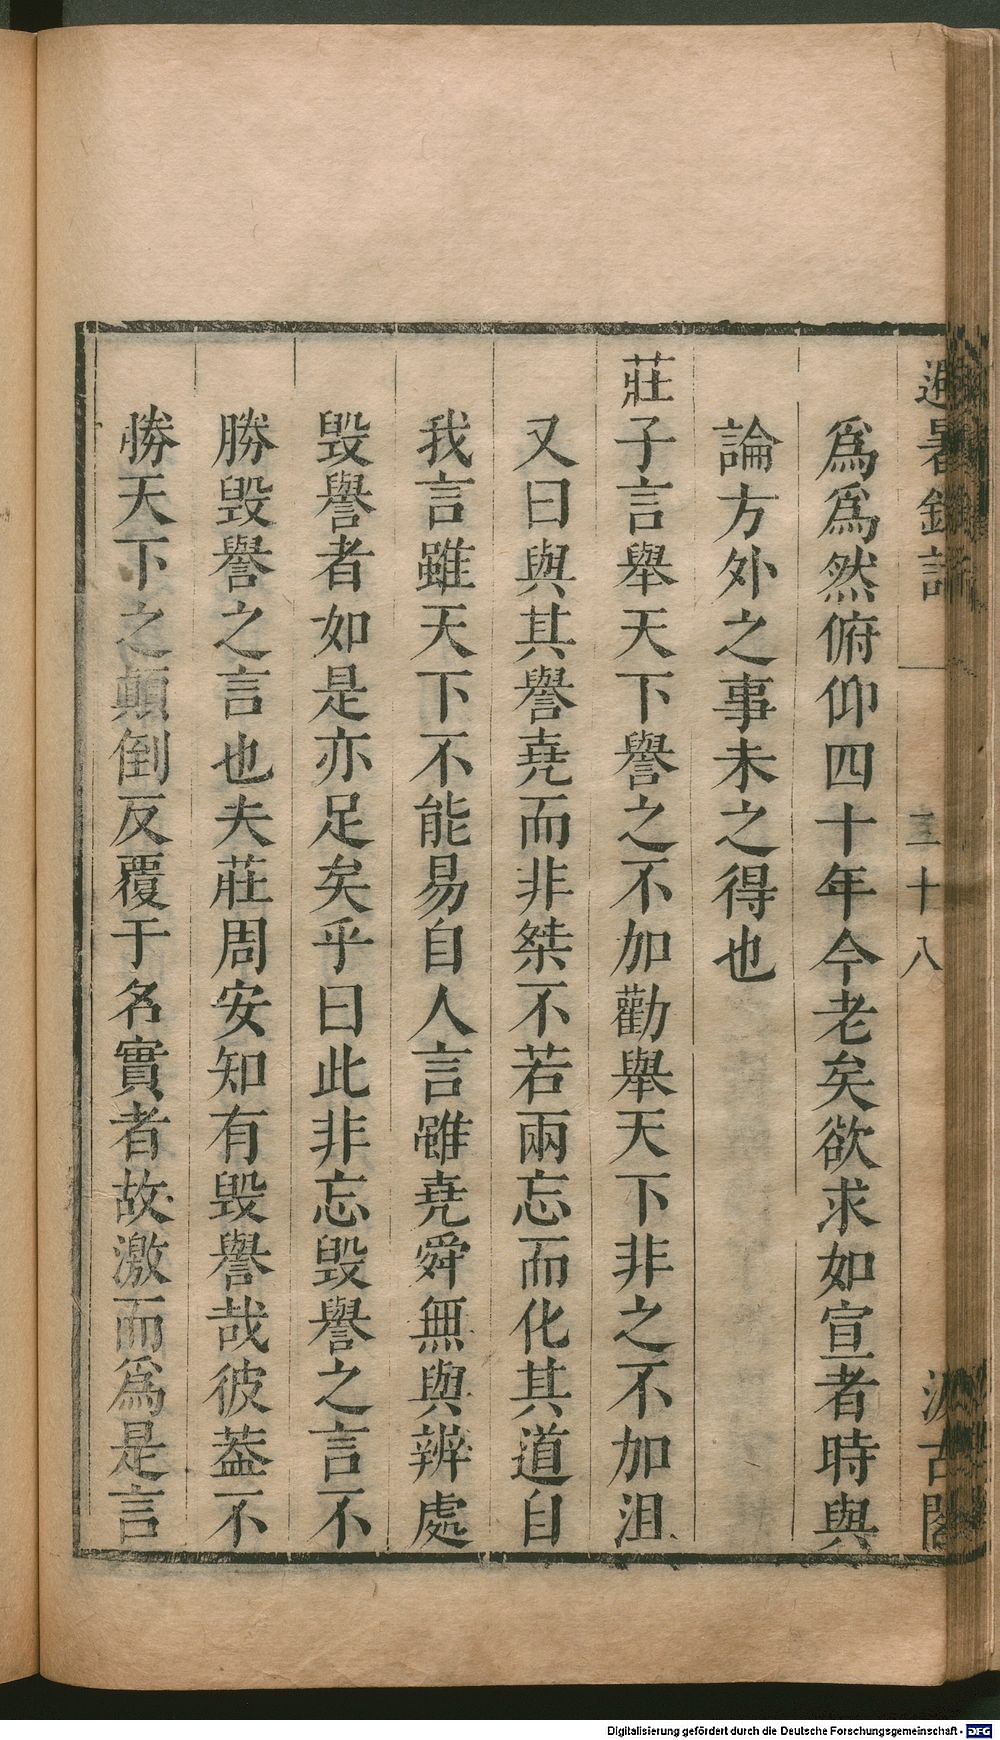 避暑錄話
三十八
汲古閣
爲爲然俯仰四十年今老矣欲求如宣者時與
論方外之事未之得也
莊子言舉天下譽之不加勸舉天下非之不加沮
又曰與其譽堯而非桀不若兩忘而化其道自
我言雖天下不能易自人言雖堯舜無與辨處
毀譽者如是亦足矣乎曰此非忘毀譽之言不
勝毀譽之言也夫莊周安知有毀譽哉彼葢不
勝天下之顛倒反覆于名實者故激而爲是言
Digitalisierung gefördert durch die Deutsche Forschungsgemeinschaft - DFG